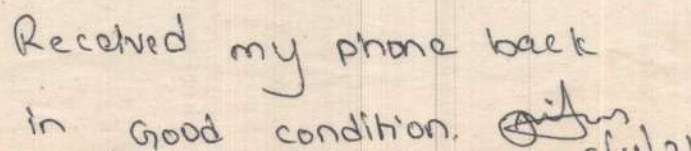 Received my phone back
in Good condition.